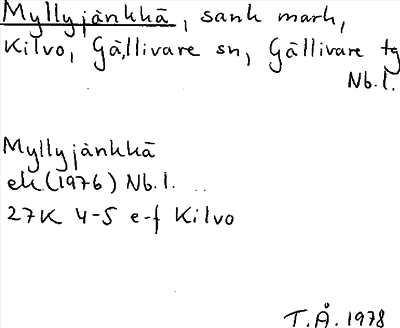 Myllyjänkkä, sank mark,
Kilvo, Gällivare sn, Gällivare tg
Nb.l.
Myllyjänkkä
ek (1976) Nb.l.
27K 4-5 e-f Kilvo
T.Å. 1978